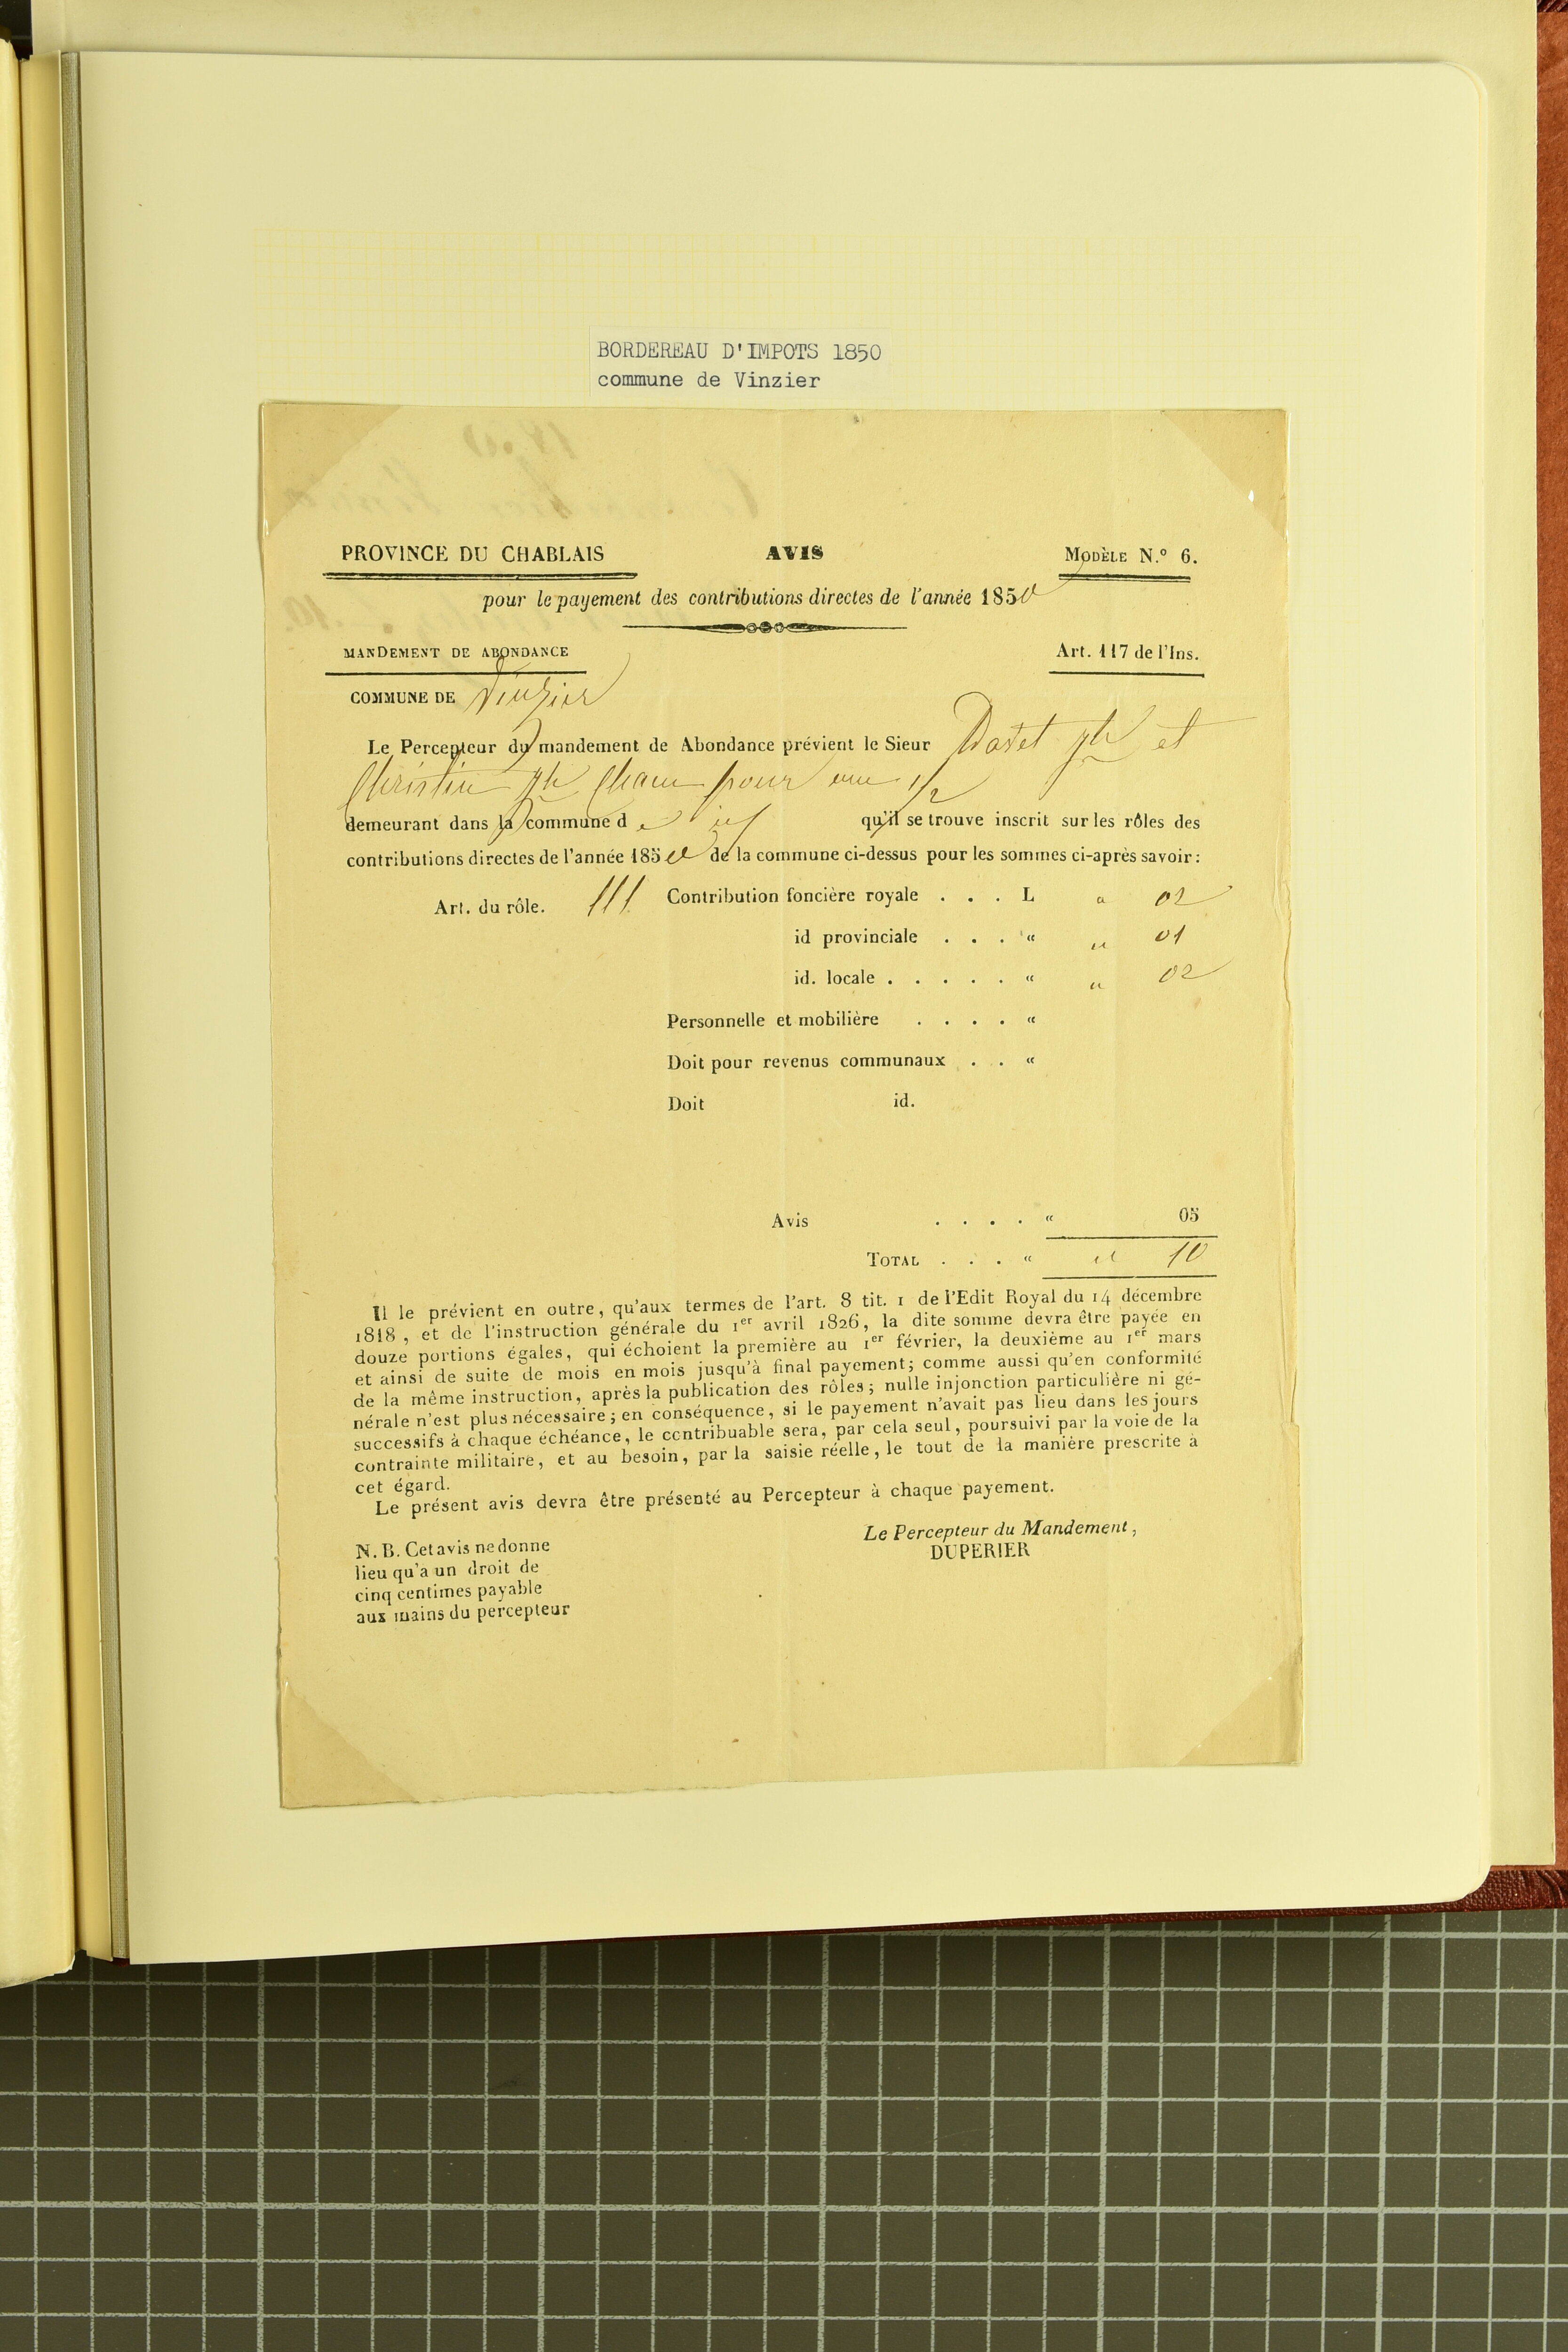 BORDEREAU D'IMPOTS 1850
commune de Vinzier
PROVINCE DU CHABLAIS
AVIS
MODÈLE N.° 6.
pour le payement des contributions directes de l'année 1850
MANDEMENT DE ABONDANCE
Art. 117 de l'Ins.
COMMUNE DE Vinzier
Le Percepteur du mandement de Abondance prévient le Sieur et
Christin pour une 1/2
demeurant dans la commune de qu'il se trouve inscrit sur les rôles des
contributions directes de l'année 1850 de la commune ci-dessus pour les sommes ci-après savoir:
Art. du rôle. 111 Contribution foncière royale . . . L " 02
id provinciale . . . « " 01
id. locale . . . . . « " 02
Personnelle et mobilière . . . . «
Doit pour revenus communaux . . «
Doit id.
Avis . . . . « 05
TOTAL . . . « " 10
Il le prévient en outre, qu'aux termes de l'art. 8 tit. 1 de l'Edit Royal du 14 décembre
1818, et de l'instruction générale du 1er avril 1826, la dite somme devra être payée en
douze portions égales, qui échoient la première au 1er février, la deuxième au 1er mars
et ainsi de suite de mois en mois jusqu'à final payement; comme aussi qu'en conformité
de la même instruction, après la publication des rôles; nulle injonction particulière ni gé-
nérale n'est plus nécessaire; en conséquence, si le payement n'avait pas lieu dans les jours
successifs à chaque échéance, le contribuable sera, par cela seul, poursuivi par la voie de la
contrainte militaire, et au besoin, par la saisie réelle, le tout de la manière prescrite à
cet égard.
Le présent avis devra être présenté au Percepteur à chaque payement.
Le Percepteur du Mandement,
DUPERIER
N. B. Cet avis ne donne
lieu qu'a un droit de
cinq centimes payable
aux mains du percepteur